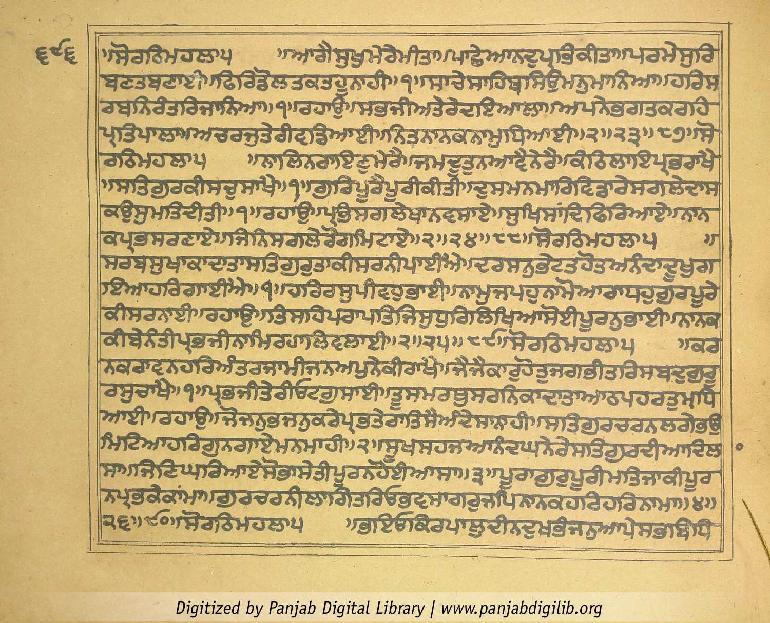 ੬੯੬
॥ਸੋਰਠਿਮਹਲਾ੫ ॥ਆਗੈਸੁਖੁਮੇਰੇਮੀਤਾ॥ਪਾਛੇਆਨਦੁਪ੍ਰਭਿਕੀਤਾ॥ਪਰਮੇਸੁਰਿ
ਬਣਤਬਣਾਈ॥ਫਿਰਿਡੋਲਤਕਤਹੂਨਾਹੀ॥੧॥ਸਾਚੇਸਾਹਿਬਸਿਉਮਨੁਮਾਨਿਆ॥ਹਰਿਸ
ਰਬਨਿਰੰਤਰਿਜਾਨਿਆ॥੧॥ਰਹਾਉ॥ਸਭਜੀਅਤੇਰੇਦਇਆਲਾ॥ਅਪਨੇਭਗਤਕਰਹਿ
ਪ੍ਰਤਿਪਾਲਾ॥ਅਚਰਜੁਤੇਰੀਵਡਿਆਈ॥ਨਿਤਨਾਨਕਨਾਮੁਧਿਆਈ॥੨॥੨੩॥੮੭॥ਸੋ
ਰਠਿਮਹਲਾ੫ ॥ਨਾਲਿਨਰਾਇਣੁਮੇਰੈ॥ਜਮਦੂਤੁਨਆਵੈਨੇਰੈ॥ਕੰਠਿਲਾਇਪ੍ਰਭਰਾਖੈ
॥ਸਤਿਗੁਰਕੀਸਚੁਸਾਖੈ॥੧॥ਗੁਰਿਪੂਰੈਪੂਰੀਕੀਤੀ॥ਦੁਸਮਨਮਾਰਿਵਿਡਾਰੇਸਗਲੇਦਾਸ
ਕਉਸੁਮਤਿਦੀਤੀ॥੧॥ਰਹਾਉ॥ਪ੍ਰਭਿਸਗਲੇਥਾਨਵਸਾਏ॥ਸੁਖਿਸਾਂਦਿਫਿਰਿਆਏ॥ਨਾਨ
ਕਪ੍ਰਭਸਰਣਾਏ॥ਜਿਨਿਸਗਲੇਰੋਗਮਿਟਾਏ॥੨॥੨੪॥੮੮॥ਸੋਰਠਿਮਹਲਾ੫ ॥
ਸਰਬਸੁਖਾਕਾਦਾਤਾਸਤਿਗੁਰੁਤਾਕੀਸਰਨੀਪਾਈਐ॥ਦਰਸਨੁਭੇਟਤਹੋਤਅਨੰਦਾਦੂਖੁਗ
ਇਆਹਰਿਗਾਈਐ॥੧॥ਹਰਿਰਸੁਪੀਵਹੁਭਾਈ॥ਨਾਮੁਜਪਹੁਨਾਮੋਆਰਾਧਹੁਗੁਰਪੂਰੇ
ਕੀਸਰਨਾਈ॥ਰਹਾਉ॥ਤਿਸਹਿਪਰਾਪਤਿਜਿਸੁਧੁਰਿਲਿਖਿਆਸੋਈਪੂਰਨੁਭਾਈ॥ਨਾਨਕ
ਕੀਬੇਨੰਤੀਪ੍ਰਭਜੀਨਾਮਿਰਹਾਲਿਵਲਾਈ॥੨॥੨੫॥੮੯॥ਸੋਰਠਿਮਹਲਾ੫ ॥ਕਰ
ਨਕਰਾਵਨਹਰਿਅੰਤਰਜਾਮੀਜਨਅਪੁਨੇਕੀਰਾਖੈ॥ਜੈਜੈਕਾਰੁਹੋਤੁਜਗਭੀਤਰਿਸਬਦੁਗੁਰੂ
ਰਸੁਚਾਖੈ॥੧॥ਪ੍ਰਭਜੀਤੇਰੀਓਟਗੁਸਾਈ॥ਤੂਸਮਰਥੁਸਰਨਿਕਾਦਾਤਾਆਠਪਹਰਤੁਮ੍ਧਿ
ਆਈ॥ਰਹਾਉ॥ਜੋਜਨੁਭਜਨੁਕਰੇਪ੍ਰਭਤੇਰਾਤਿਸੈਅੰਦੇਸਾਨਾਹੀ॥ਸਤਿਗੁਰਚਰਨਲਗੇਭਉ
ਮਿਟਿਆਹਰਿਗੁਨਗਾਏਮਨਮਾਹੀ॥੨॥ਸੂਖਸਹਜਆਨੰਦਘਨੇਰੇਸਤਿਗੁਰਦੀਆਦਿਲਾ
ਸਾ॥ਜਿਣਿਘਰਿਆਏਸੋਭਾਸੇਤੀਪੂਰਨਹੋਈਆਸਾ॥੩॥ਪੂਰਾਗੁਰੁਪੂਰੀਮਤਿਜਾਕੀਪੂਰ
ਨਪ੍ਰਭਕੇਕਾਮਾ॥ਗੁਰਚਰਨੀਲਾਗਿਤਰਿਓਭਵਸਾਗਰੁਜਪਿਨਾਨਕਹਰਿਹਰਿਨਾਮਾ॥੪॥
੨੬॥੯੦॥ਸੋਰਠਿਮਹਲਾ੫ ॥ਭਇਓਕਿਰਪਾਲੁਦੀਨਦੁਖਭੰਜਨੁਆਪੇਸਭਬਿਧਿ
Digitized by Panjab Digital Library | www.panjabdigilib.org